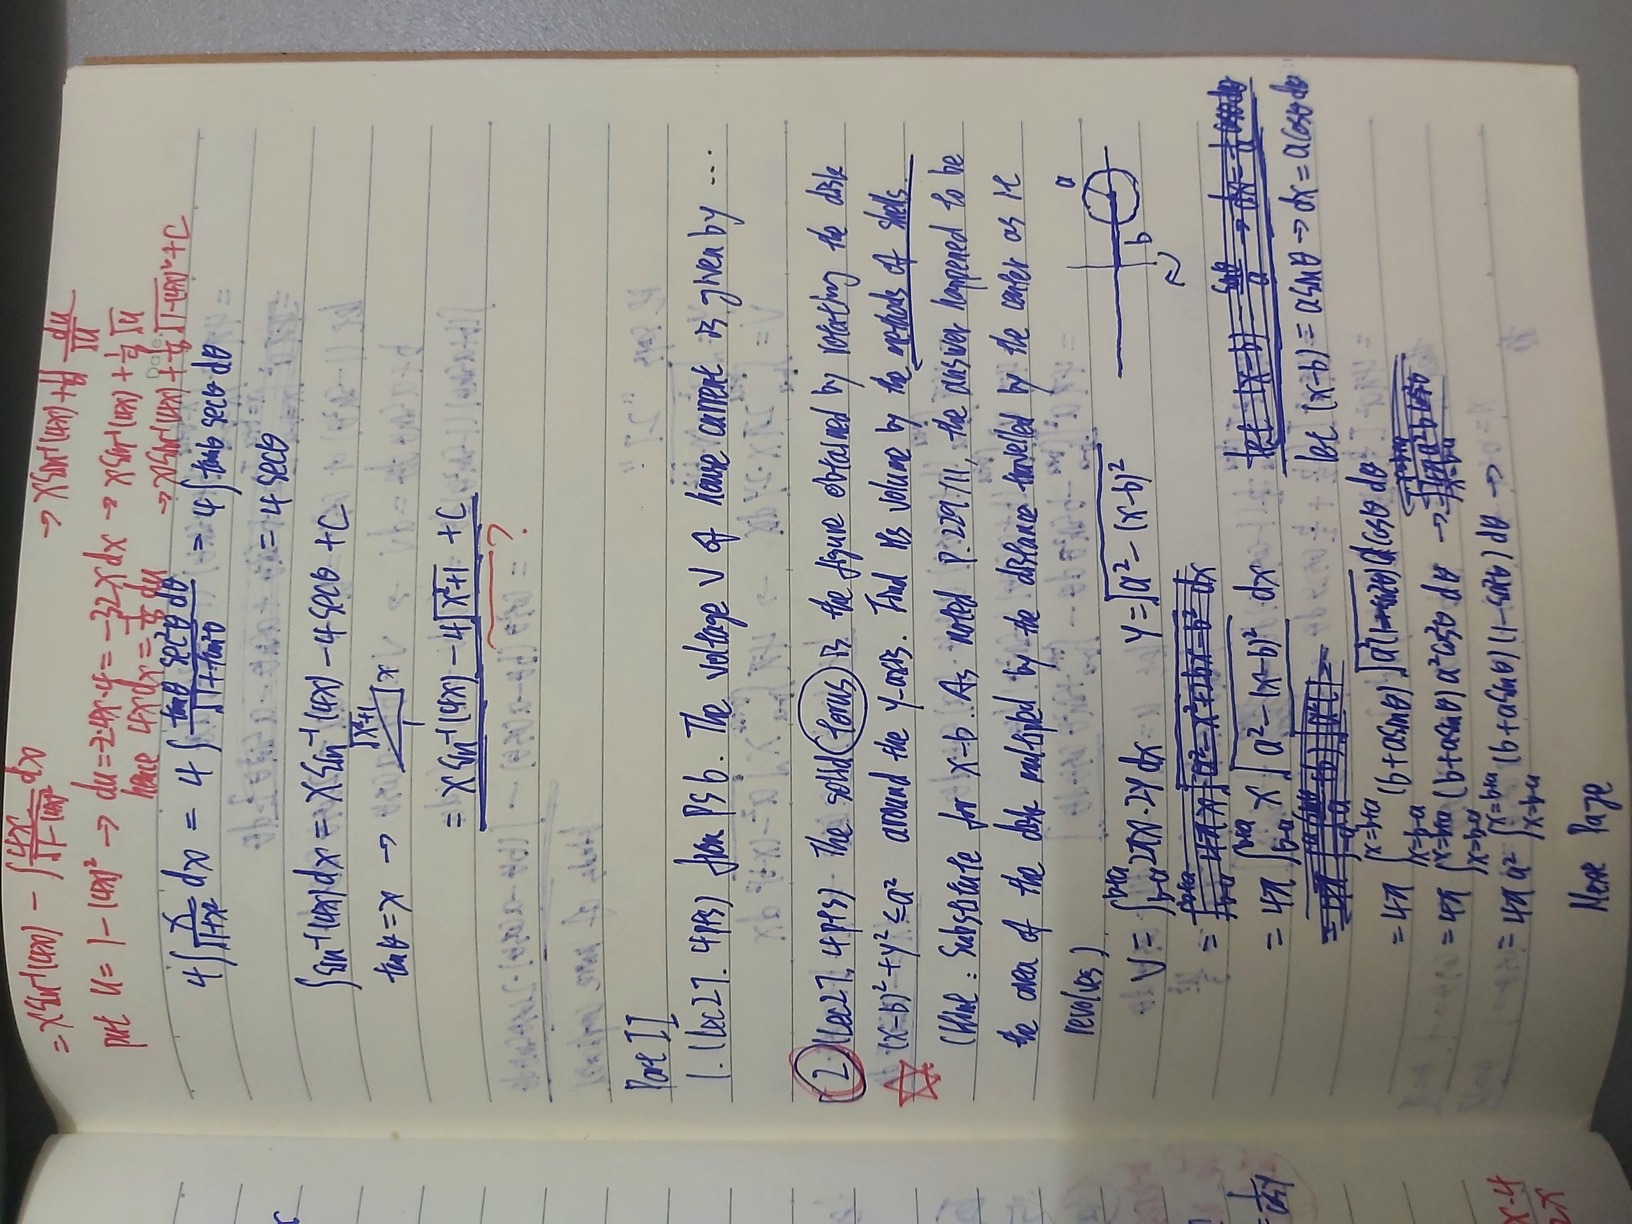 = x sin⁻¹(4x) − ∫ 4x/√(1−(4x)²) dx → x sin⁻¹(4x) + 1/8 ∫ du/√u
put u = 1−(4x)² → du = −2·4x·4 = −32x dx → x sin⁻¹(4x) + 1/4 √u
hence 4x dx = −1/8 du → x sin⁻¹(4x) + 1/4 √(1−(4x)²) + C
4∫ x/√(1+x²) dx = 4∫ tanθ sec²θ dθ/√(1+tan²θ) = 4∫ tanθ secθ dθ
= 4 secθ
∫ sin⁻¹(4x) dx = x sin⁻¹(4x) − 4 secθ + C
tanθ = x → √(x²+1) x 1
= x sin⁻¹(4x) − 4√(x²+1) + C
?
Part II
1. (Lec27. 4pts) from PS6. The voltage V of house current is given by ...
2. (Lec27, 4pts) The solid torus is the figure obtained by rotating the disk
(x−b)² + y² ≤ a² around the y-axis. Find its volume by the methods of shells.
(Hint : Substitute for x−b. As noted P.229/11, the answer happened to be
the area of the disk multipled by the distance travelled by the center as it
revolves)
a
V = ∫_{b−a}^{b+a} 2πx·2y dx y = √(a² − (x−b)²)
b
= ∫_{b−a}^{b+a} 4πx √(a² − x² + 2bx − b²) dx
= 4π ∫_{b−a}^{b+a} x √(a² − (x−b)²) dx let (x−b) = sinθ/a → dx = 1/a cosθ dθ
let (x−b) = a sinθ → dx = a cosθ dθ
= 4π ∫_{x=b−a}^{x=b+a} (b+a sinθ) √(a²(1−sin²θ)) a cosθ dθ
= 4π ∫_{x=b−a}^{x=b+a} (b+a sinθ) a² cos²θ dθ →
= 4π a² ∫_{x=b−a}^{x=b+a} (b+a sinθ)(1−sin²θ) dθ →
Next Page